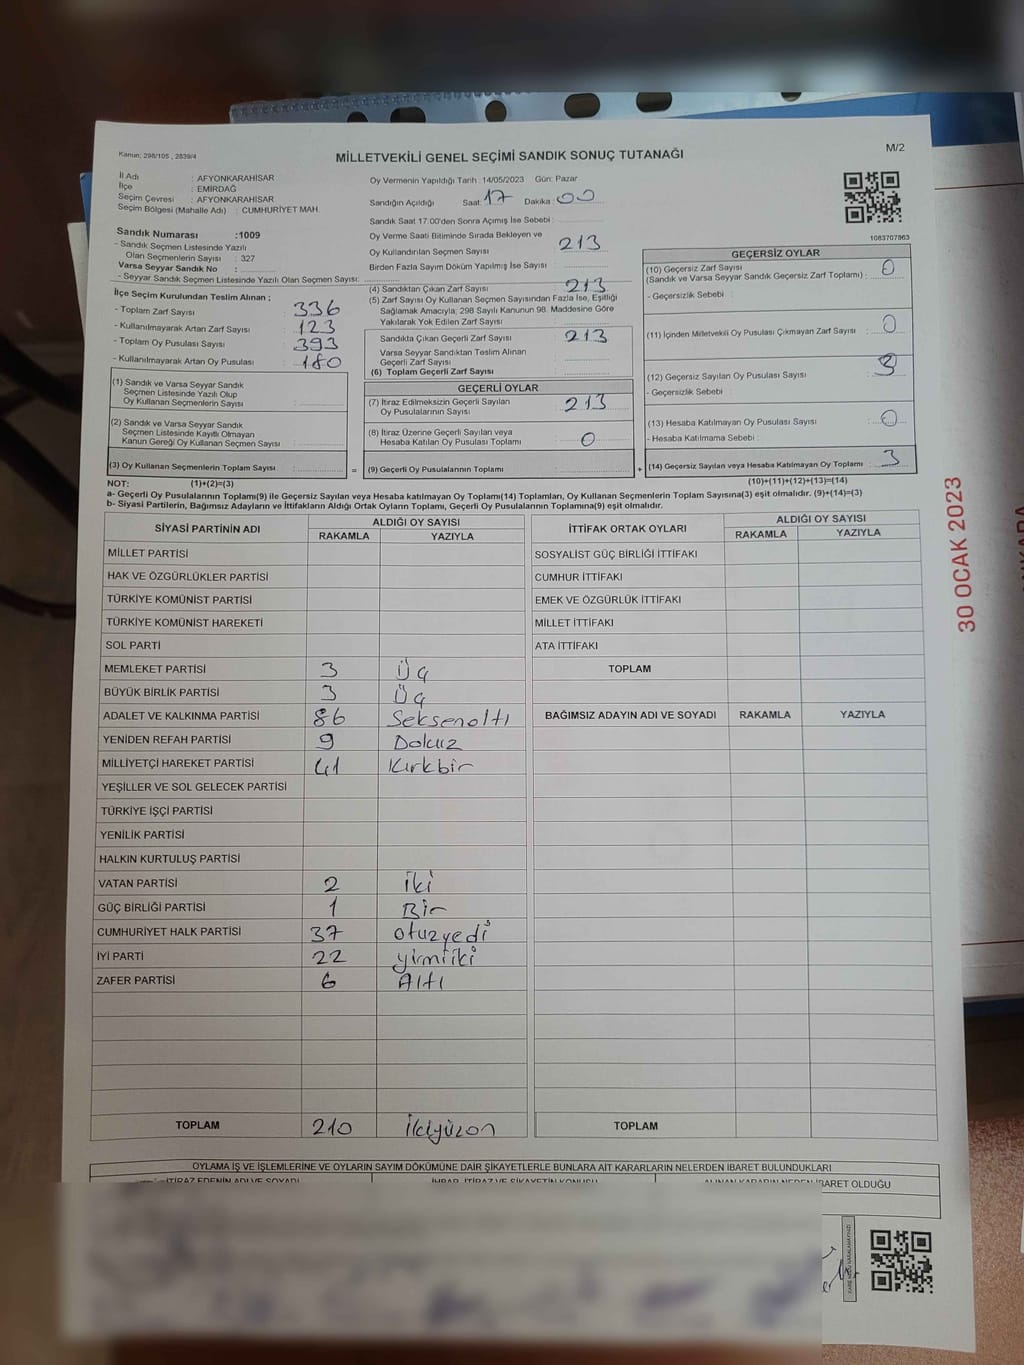 Kanun; 298/105 , 2839/4
MİLLETVEKİLİ GENEL SEÇİMİ SANDIK SONUÇ TUTANAĞI
M/2
İl Adı : AFYONKARAHİSAR
İlçe : EMİRDAĞ
Seçim Çevresi : AFYONKARAHİSAR
Seçim Bölgesi (Mahalle Adı) : CUMHURİYET MAH.
Oy Vermenin Yapıldığı Tarih : 14/05/2023 Gün: Pazar
Sandığın Açıldığı Saat: 17 Dakika: 00
Sandık Saat 17:00'den Sonra Açımış İse Sebebi :
Oy Verme Saati Bitiminde Sırada Bekleyen ve
Oy Kullandırılan Seçmen Sayısı 213
Birden Fazla Sayım Döküm Yapılmış İse Sayısı
1083707863
Sandık Numarası :1009
- Sandık Seçmen Listesinde Yazılı
Olan Seçmenlerin Sayısı : 327
Varsa Seyyar Sandık No :
- Seyyar Sandık Seçmen Listesinde Yazılı Olan Seçmen Sayısı:
İlçe Seçim Kurulundan Teslim Alınan ;
- Toplam Zarf Sayısı : 336
- Kullanılmayarak Artan Zarf Sayısı : 123
- Toplam Oy Pusulası Sayısı : 393
- Kullanılmayarak Artan Oy Pusulası : 180
(1) Sandık ve Varsa Seyyar Sandık
Seçmen Listesinde Yazılı Olup
Oy Kullanan Seçmenlerin Sayısı :
(2) Sandık ve Varsa Seyyar Sandık
Seçmen Listesinde Kayıtlı Olmayan
Kanun Gereği Oy Kullanan Seçmen Sayısı :
(3) Oy Kullanan Seçmenlerin Toplam Sayısı : =
(4) Sandıktan Çıkan Zarf Sayısı 213
(5) Zarf Sayısı Oy Kullanan Seçmen Sayısından Fazla İse, Eşitliği
Sağlamak Amacıyla; 298 Sayılı Kanunun 98. Maddesine Göre
Yakılarak Yok Edilen Zarf Sayısı :
Sandıkta Çıkan Geçerli Zarf Sayısı 213
Varsa Seyyar Sandıktan Teslim Alınan
Geçerli Zarf Sayısı
(6) Toplam Geçerli Zarf Sayısı
GEÇERLİ OYLAR
(7) İtiraz Edilmeksizin Geçerli Sayılan
Oy Pusulalarının Sayısı : 213
(8) İtiraz Üzerine Geçerli Sayılan veya
Hesaba Katılan Oy Pusulası Toplamı : 0
(9) Geçerli Oy Pusulalarının Toplamı : +
GEÇERSİZ OYLAR
(10) Geçersiz Zarf Sayısı 0
(Sandık ve Varsa Seyyar Sandık Geçersiz Zarf Toplamı) :
- Geçersizlik Sebebi :
(11) İçinden Milletvekili Oy Pusulası Çıkmayan Zarf Sayısı : 0
(12) Geçersiz Sayılan Oy Pusulası Sayısı : 3
- Geçersizlik Sebebi :
(13) Hesaba Katılmayan Oy Pusulası Sayısı : 0
- Hesaba Katılmama Sebebi :
(14) Geçersiz Sayılan veya Hesaba Katılmayan Oy Toplamı : 3
NOT: (1)+(2)=(3) (10)+(11)+(12)+(13)=(14)
a- Geçerli Oy Pusulalarının Toplamı(9) ile Geçersiz Sayılan veya Hesaba katılmayan Oy Toplamı(14) Toplamları, Oy Kullanan Seçmenlerin Toplam Sayısına(3) eşit olmalıdır. (9)+(14)=(3)
b- Siyasi Partilerin, Bağımsız Adayların ve İttifakların Aldığı Ortak Oyların Toplamı, Geçerli Oy Pusulalarının Toplamına(9) eşit olmalıdır.
SİYASİ PARTİNİN ADI ALDIĞI OY SAYISI
RAKAMLA YAZIYLA
MİLLET PARTİSİ
HAK VE ÖZGÜRLÜKLER PARTİSİ
TÜRKİYE KOMÜNİST PARTİSİ
TÜRKİYE KOMÜNİST HAREKETİ
SOL PARTİ
MEMLEKET PARTİSİ 3 Üç
BÜYÜK BİRLİK PARTİSİ 3 Üç
ADALET VE KALKINMA PARTİSİ 86 Seksenaltı
YENİDEN REFAH PARTİSİ 9 Dokuz
MİLLİYETÇİ HAREKET PARTİSİ 41 Kırkbir
YEŞİLLER VE SOL GELECEK PARTİSİ
TÜRKİYE İŞÇİ PARTİSİ
YENİLİK PARTİSİ
HALKIN KURTULUŞ PARTİSİ
VATAN PARTİSİ 2 iki
GÜÇ BİRLİĞİ PARTİSİ 1 Bir
CUMHURİYET HALK PARTİSİ 37 otuzyedi
İYİ PARTİ 22 yirmiiki
ZAFER PARTİSİ 6 Altı
TOPLAM 210 ikiyüzon
İTTİFAK ORTAK OYLARI ALDIĞI OY SAYISI
RAKAMLA YAZIYLA
SOSYALİST GÜÇ BİRLİĞİ İTTİFAKI
CUMHUR İTTİFAKI
EMEK VE ÖZGÜRLÜK İTTİFAKI
MİLLET İTTİFAKI
ATA İTTİFAKI
TOPLAM
BAĞIMSIZ ADAYIN ADI VE SOYADI RAKAMLA YAZIYLA
TOPLAM
OYLAMA İŞ VE İŞLEMLERİNE VE OYLARIN SAYIM DÖKÜMÜNE DAİR ŞİKAYETLERLE BUNLARA AİT KARARLARIN NELERDEN İBARET BULUNDUKLARI
İTİRAZ EDENİN ADI VE SOYADI İHBAR, İTİRAZ VE ŞİKAYETİN KONUSU ALINAN KARARIN NEDEN İBARET OLDUĞU
30 OCAK 2023